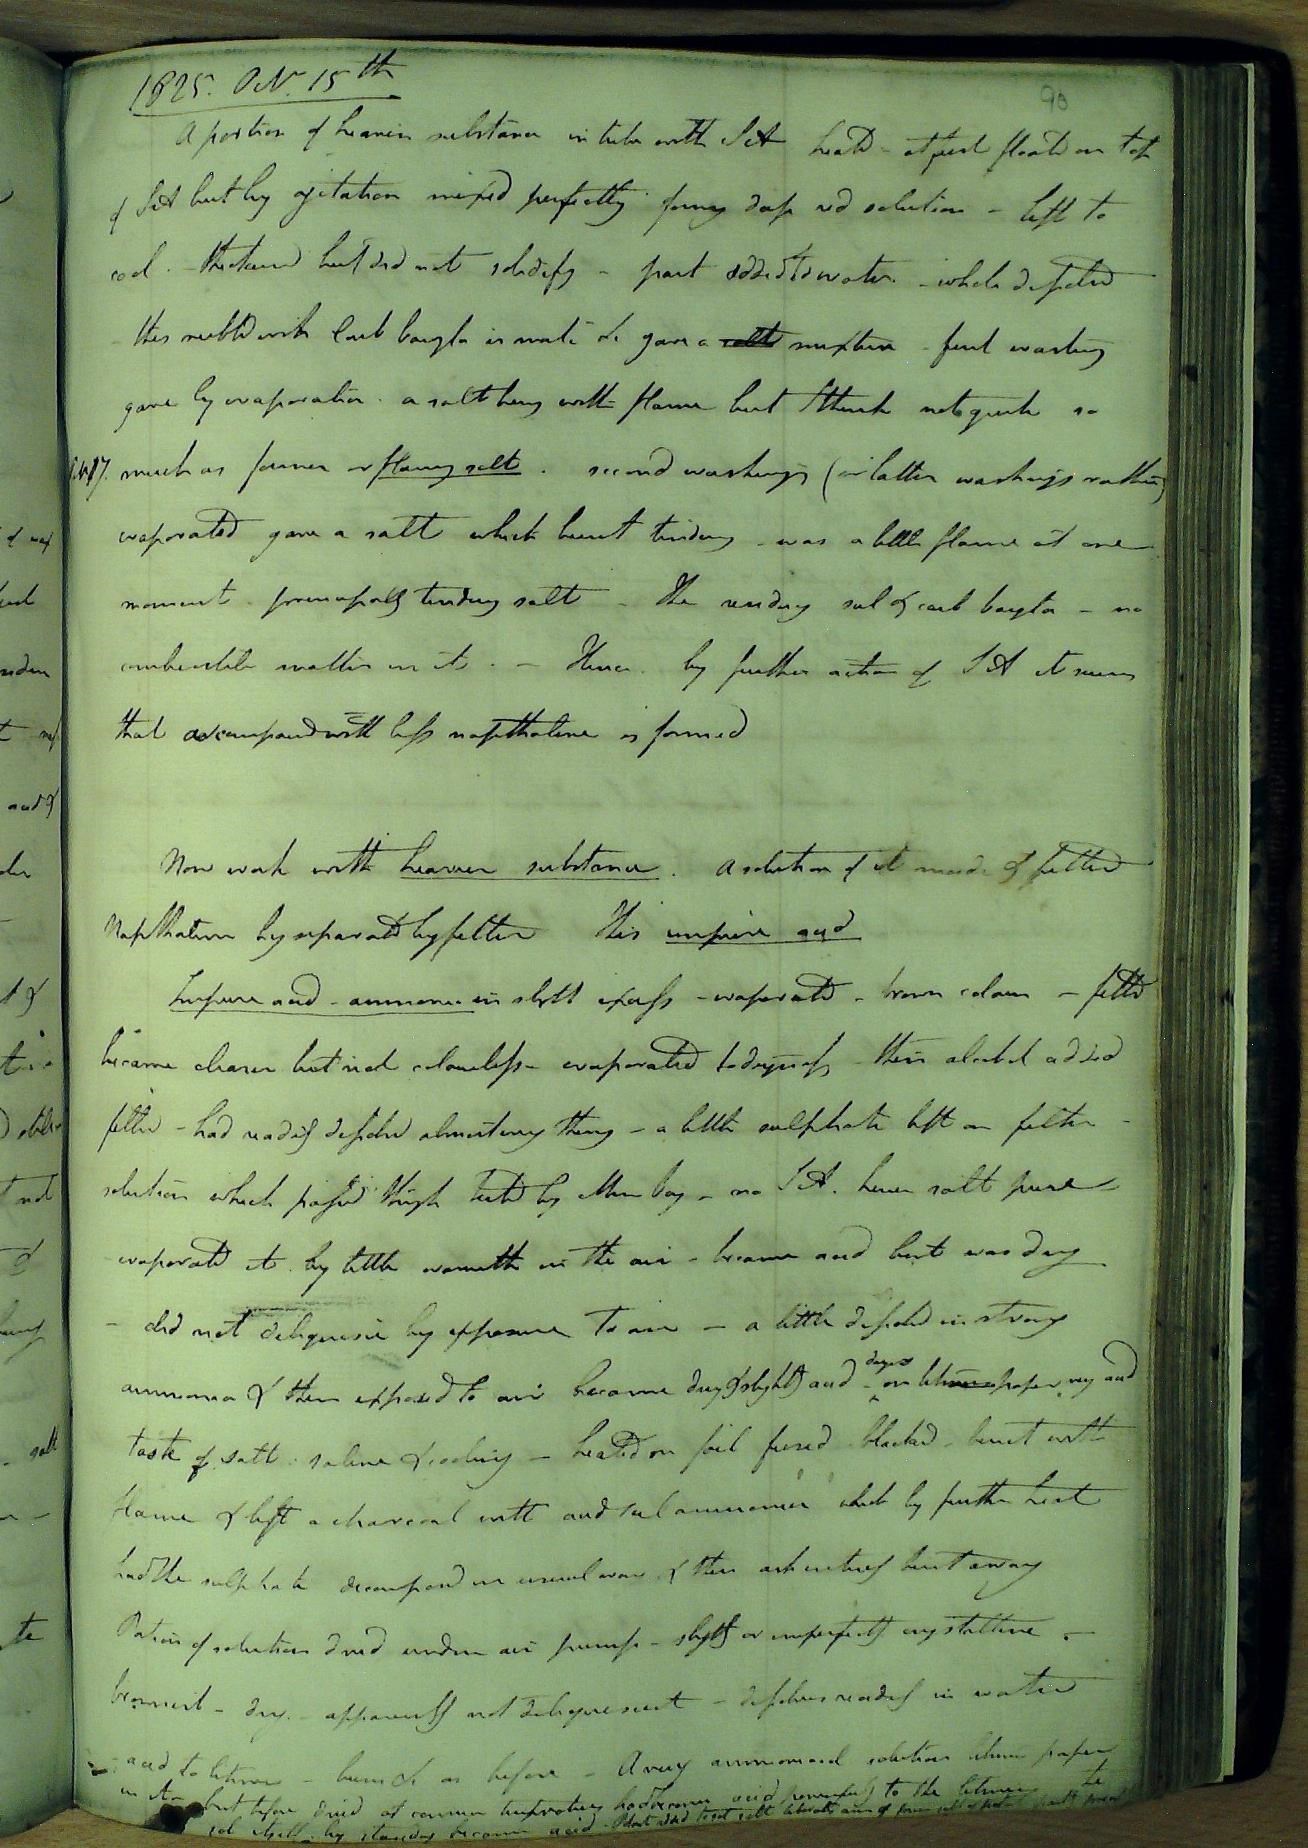 1825. Oct. 15th
90
A portion of heavier substance in tube with S A heated - at first floated on top
of S A but by agitation mixed perfectly forming deep red solution - left to
cool - thickened but did not solidify - part added to water - whole dissolved
- this rubbed with Carb baryta in water &c gave a salt mixture - first washing
gave by evaporation a salt burng with flame but I think not quite so
much as former or flaming salt. second washings (or latter washings rather)
evaporated gave a salt which burnt tindery - was a little flame at one
moment - principally tindery salt - The residuy sul & carb baryta - no
combustible matter in it. - Hence by further action of S A it seems
that a compound with less napthaline is formed
Now work with heavier substance. A solution of it made & filtered
Napthaline by separated by filter This impure acid
Impure acid - ammonia in slight excess - evaporated - brown colour - filtd
became clearer but not colourless - evaporated to dryness - then alcohol added
filtd - had readily dissolvd almost every thing - a little sulphate left on filter -
solution which passed through testd by Mur Bay - no S A. hence salt pure
evaporated it by little warmth in the air - became acid but was dry
- did not deliquesce by exposure to air - a little dissolvd in strong
ammonia & then exposed to air became dry & slightly acid - on litmus paper very acid
taste of salt saline & cooling - heated on foil fused blackd burnt with
flame & left a charcoal with acid sul ammonia which by further heat
had the sulphate decomposed in usual way & then ash entirely burnt away
Portion of solution dried under air pump - slightly or imperfectly crystalline -
brownish - dry - apparently not deliquescent - dissolves readily in water
acid to litmus - burns &c as before - A very ammoniacal solution litmus paper
in it but before dried at common temperature had become acid powerfully to the litmus - the
sol itself by standing became acid -